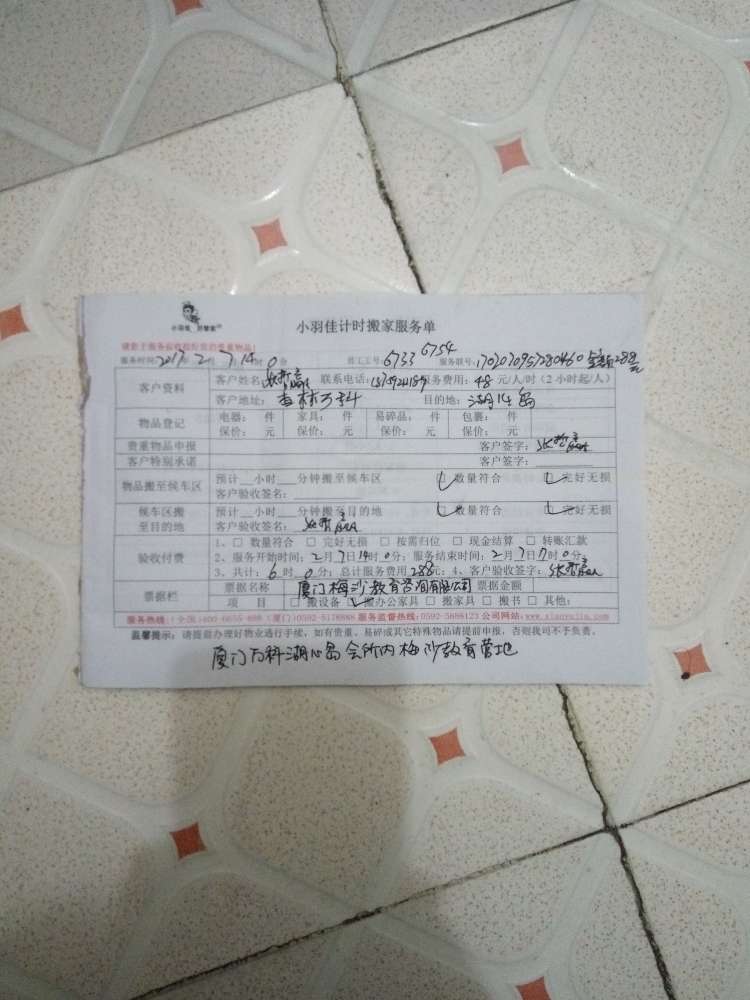 小羽佳计时搬家服务单
请业主服务验收前清点贵重物品!
服务时间:2017年2月7日14时0分 员工工号:6733 6754 服务联号:
客户资料 客户姓名: 联系电话: 服务费用:48元/人/时(2小时起/人)
客户地址:杏林万科 目的地:湖心岛
物品登记 电器: 件 家具: 件 易碎品: 件 包裹: 件
保价: 元 保价: 元 保价: 元 保价: 元
贵重物品申报 客户签字:
客户特别承诺 客户签字:
物品搬至候车区 预计__小时___分钟搬至候车区 □数量符合 □完好无损
客户验收签名:
候车区搬至目的地 预计__小时___分钟搬至目的地 □数量符合 □完好无损
客户验收签名:
验收付费 1、□ 数量符合 □ 完好无损 □ 按需归位 □ 现金结算 □ 转账汇款
2、服务开始时间:2月7日14时0分;服务结束时间:2月7日17时0分;
3、共计:6时0分;总计服务费用288元;4、客户验收签字:
票据栏 票据名称 厦门梅沙教育咨询有限公司 票据金额
项 目 □ 搬设备 □ 搬办公家具 □ 搬家具 □ 搬书 □ 其他:
服务热线:(全国)400-6655-888 (厦门)0592-5178888 服务监督热线:0592-5888123 公司网站:www.xiaoyujia.com
温馨提示:请提前办理好物业通行手续,如有贵重、易碎或其它特殊物品请提前申报,否则我司不予负责。
厦门万科湖心岛会所内梅沙教育营地